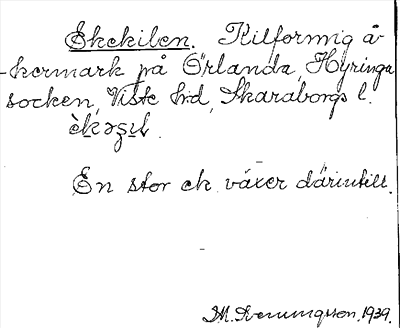 Ekekilen. Kilformig å-
kermark på Örlanda, Hyringa
socken, Viste hd, Skaraborgs l.
En stor ek växer därintill.
M. Svenungsson. 1939.